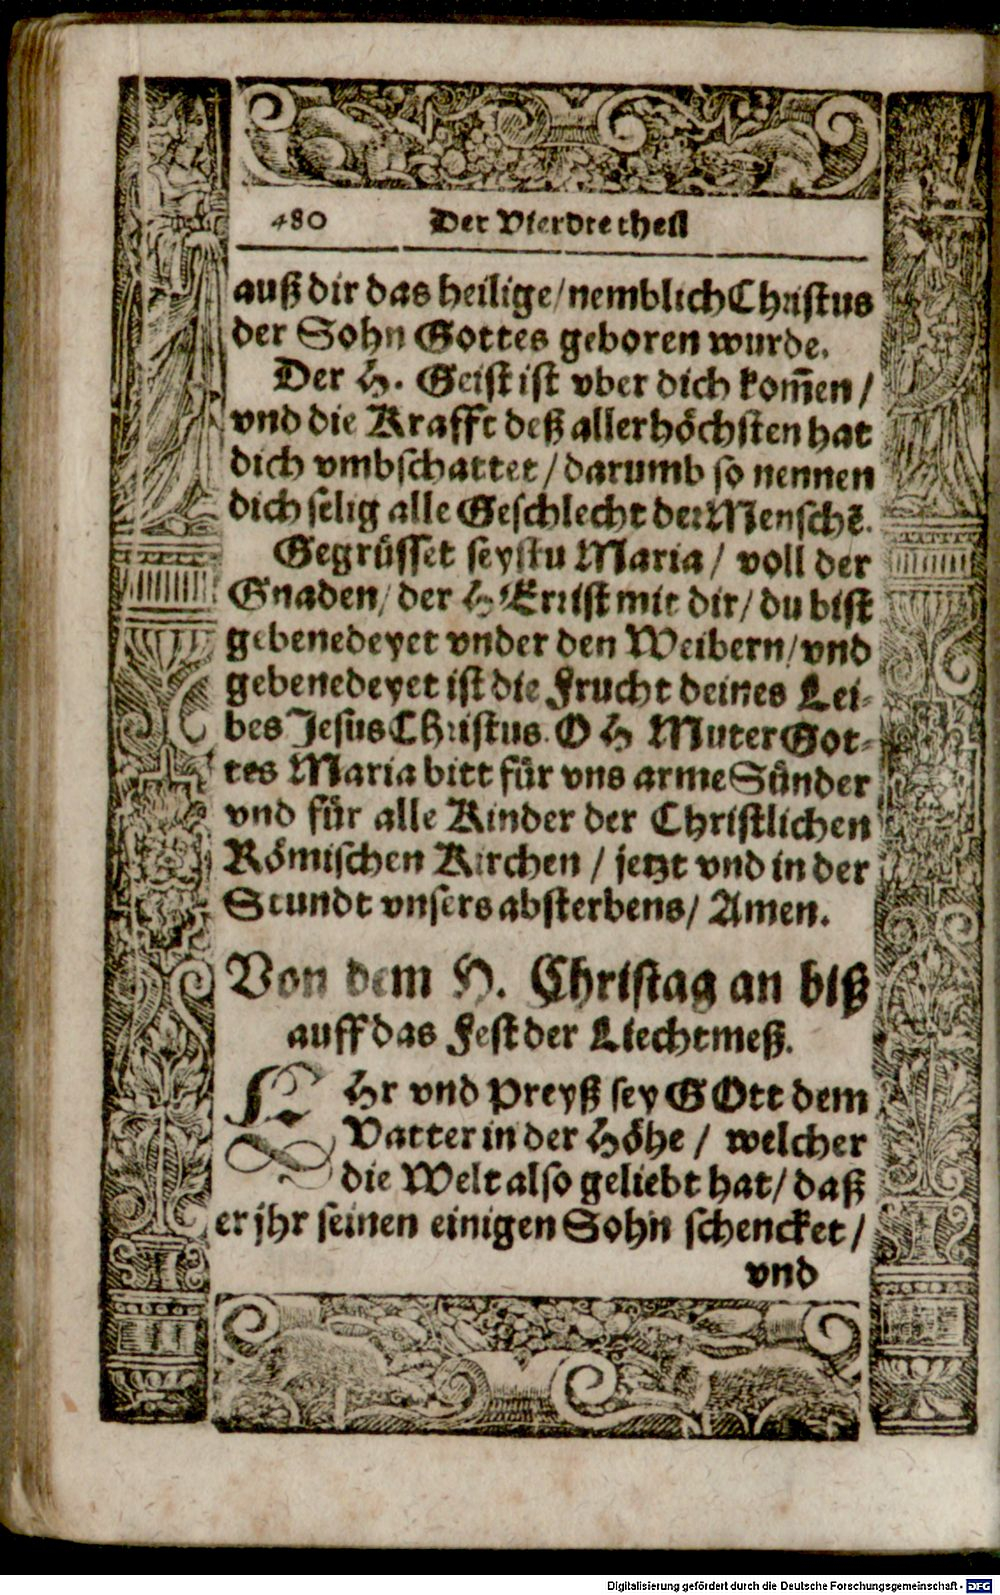 480 Der Vierdte theil
auß dir das heilige/ nemblich Christus
der Sohn Gottes geboren wurde.
Der H. Geist ist vber dich kom̃en /
vnd die Krafft deß allerhöchsten hat
dich vmbschattet / darumb so nennen
dich selig alle Geschlecht der Mensche͂.
Gegrüsset seystu Maria / voll der
Gnaden/ der HErr ist mit dir/ du bist
gebenedeyet vnder den Weibern/ vnd
gebenedeyet ist die Frucht deines Lei-
bes Jesus Christus. O H Muter Got-
tes Maria bitt für vns arme Sünder
vnd für alle Kinder der Christlichen
Römischen Kirchen / jetzt vnd in der
Stundt vnsers absterbens/ Amen.
Von dem H. Christag an biß
auff das Fest der Liechtmeß.
EHr vnd Preyß sey GOtt dem
Vatter in der Höhe / welcher
die Welt also geliebt hat/ daß
er jhr seinen einigen Sohn schencket /
vnd
Digitalisierung gefördert durch die Deutsche Forschungsgemeinschaft - DFG